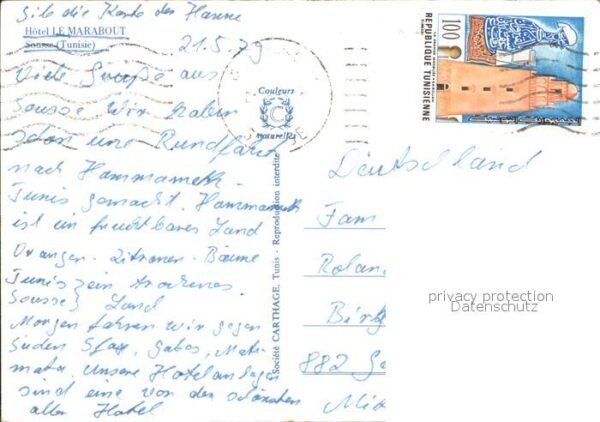 Gib die Karte der Hanne
Hôtel LE MARABOUT
Sousse (Tunisie)
21.5.79
Viele Grüße aus
Sousse. Wir haben
schon eine Rundfahrt
nach Hammameth -
Tunis gemacht. Hammameth
ist ein fruchtbares Land
Orangen - Zitronen - Bäume
Tunis ein trockenes
Sousse Land
Morgen fahren wir gegen
Süden Sfax, Gabes, Mat-
mata. Unsere Hotelanlagen
sind eine von den schönsten
aller Hotel
Couleurs
C
naturelles
Société CARTHAGE, Tunis - Reproduction interdite
100
REPUBLIQUE TUNISIENNE
Deutschland
Fam
Rolan
Birk
882 G
Mit
privacy protection
Datenschutz